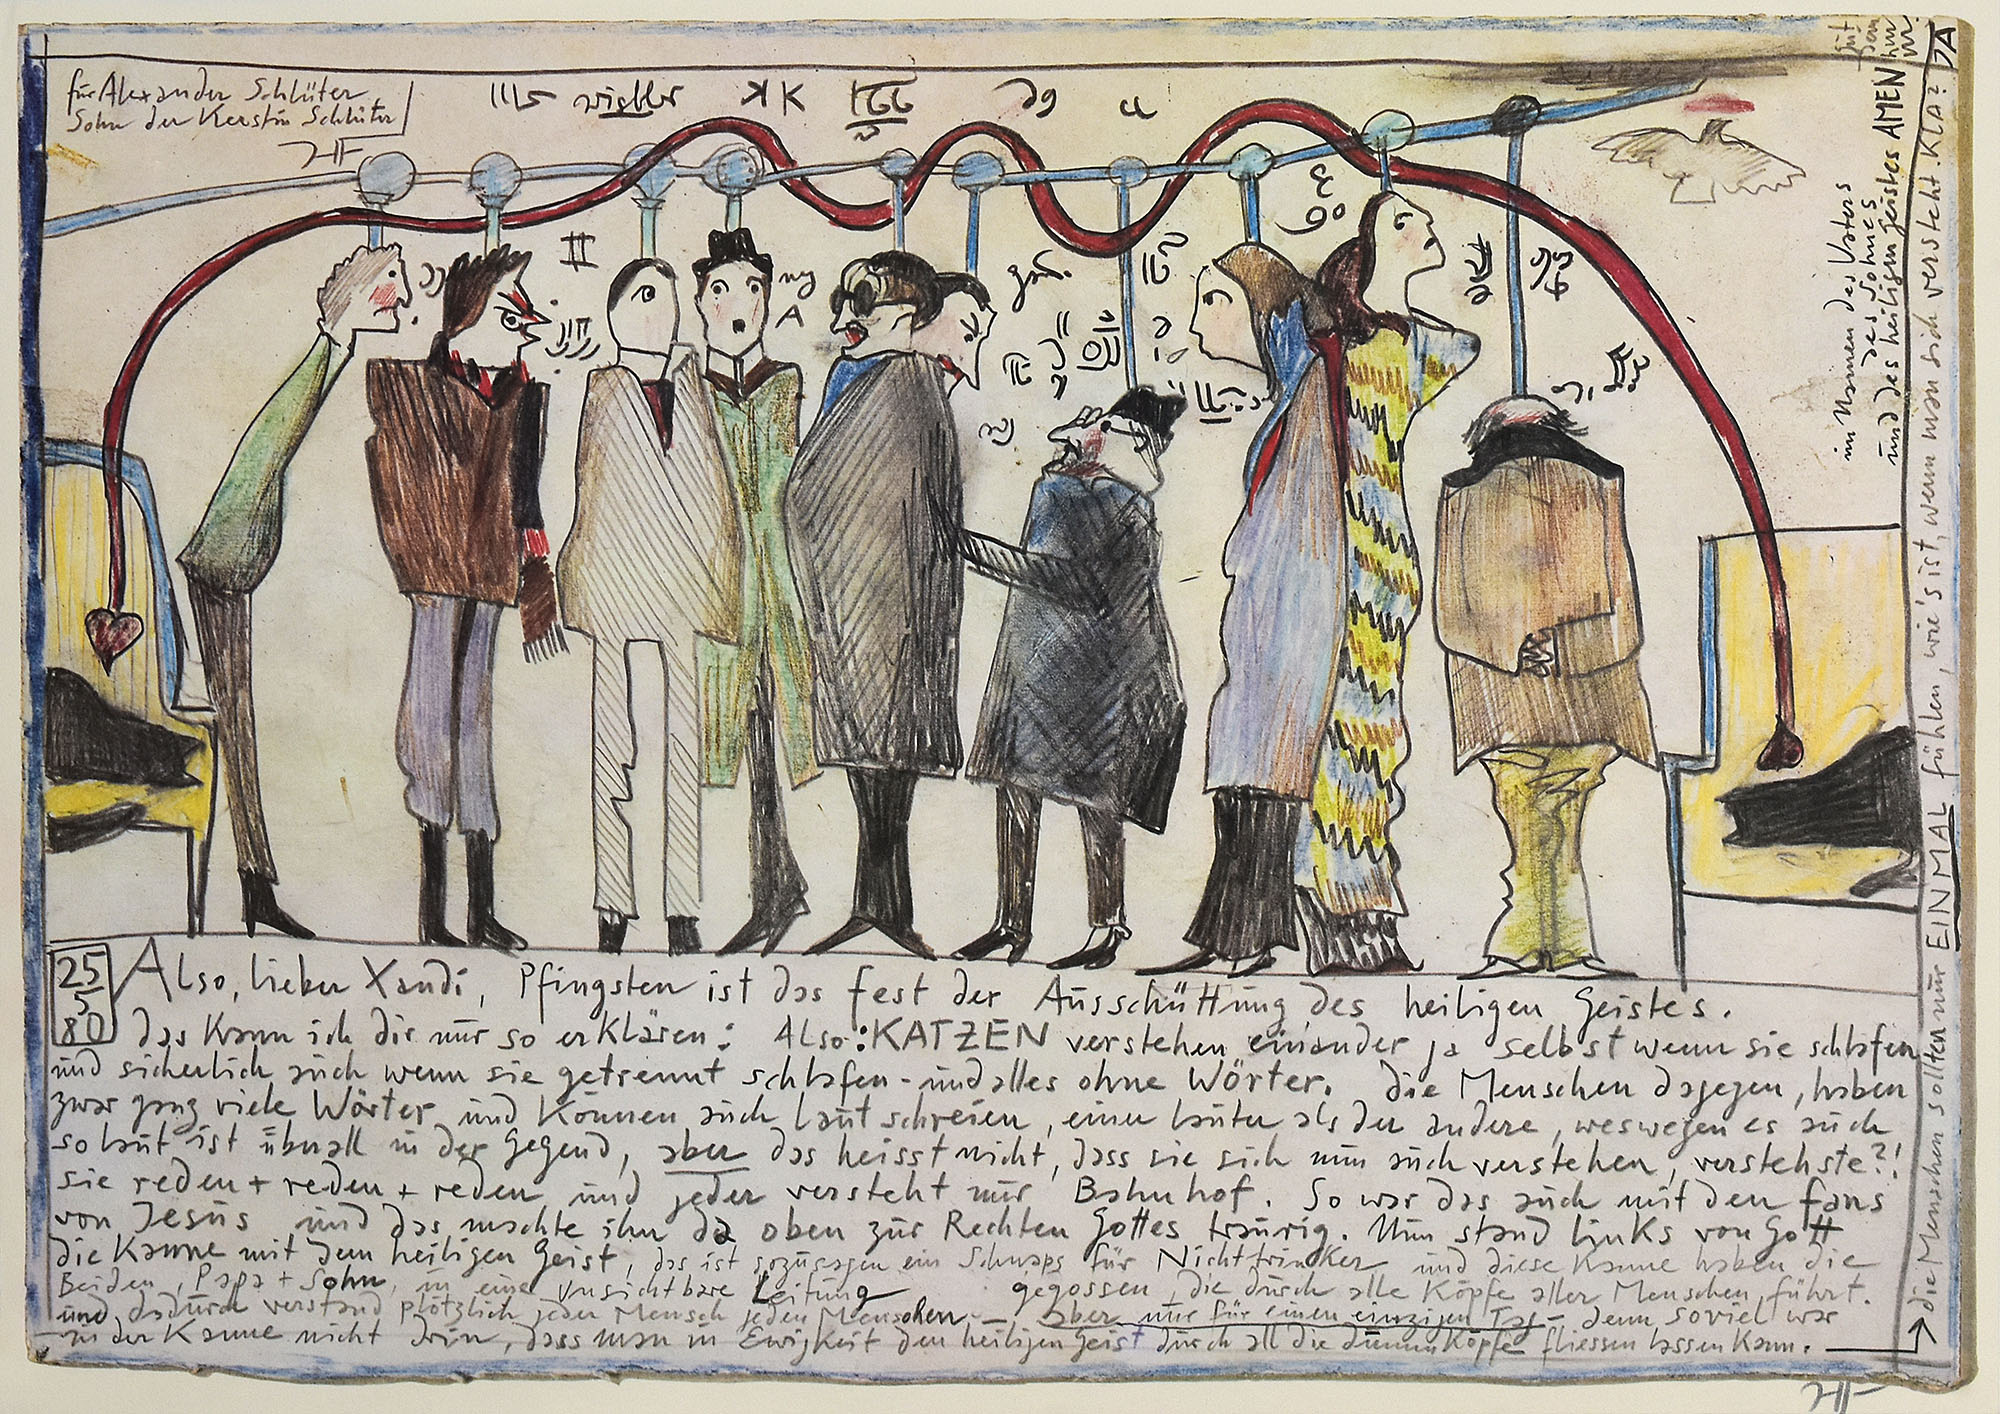 für Alexander Schlüter
Sohn der Kerstin Schlüter
25
5
80
Also, lieber Xandi, Pfingsten ist das fest der Ausschüttung des heiligen Geistes.
das kann ich dir nur so erklären: Also: KATZEN verstehen einander ja selbst wenn sie schlafen
und sicherlich auch wenn sie getrennt schlafen - und alles ohne Wörter. die Menschen dagegen, haben
zwar ganz viele Wörter und können auch laut schreien, einer lauter als der andere, weswegen es auch
so laut ist überall in der Gegend, aber das heisst nicht, dass sie sich nun auch verstehen, verstehste?!
sie reden + reden + reden und jeder versteht nur Bahnhof. So war das auch mit den fans
von Jesus und das machte ihn da oben zur Rechten Gottes traurig. Nun stand links von Gott
die Kanne mit dem heiligen Geist, das ist sozusagen ein Schnaps für Nichttrinker und diese Kanne haben die
Beiden, Papa + Sohn, in eine unsichtbare Leitung gegossen, die durch alle Köpfe aller Menschen führt.
und dadurch verstand plötzlich jeder Mensch jeden Menschen - aber nur für einen einzigen Tag - denn soviel war
in der Kanne nicht drin, dass man in Ewigkeit den heiligen Geist durch all die dummen Köpfe fliessen lassen kann.
→ die Menschen sollten nur EINMAL fühlen, wie's ist, wenn man sich versteht. KLA? JA
im Namen des Vaters
des Sohnes
und des heiligen Geistes AMEN